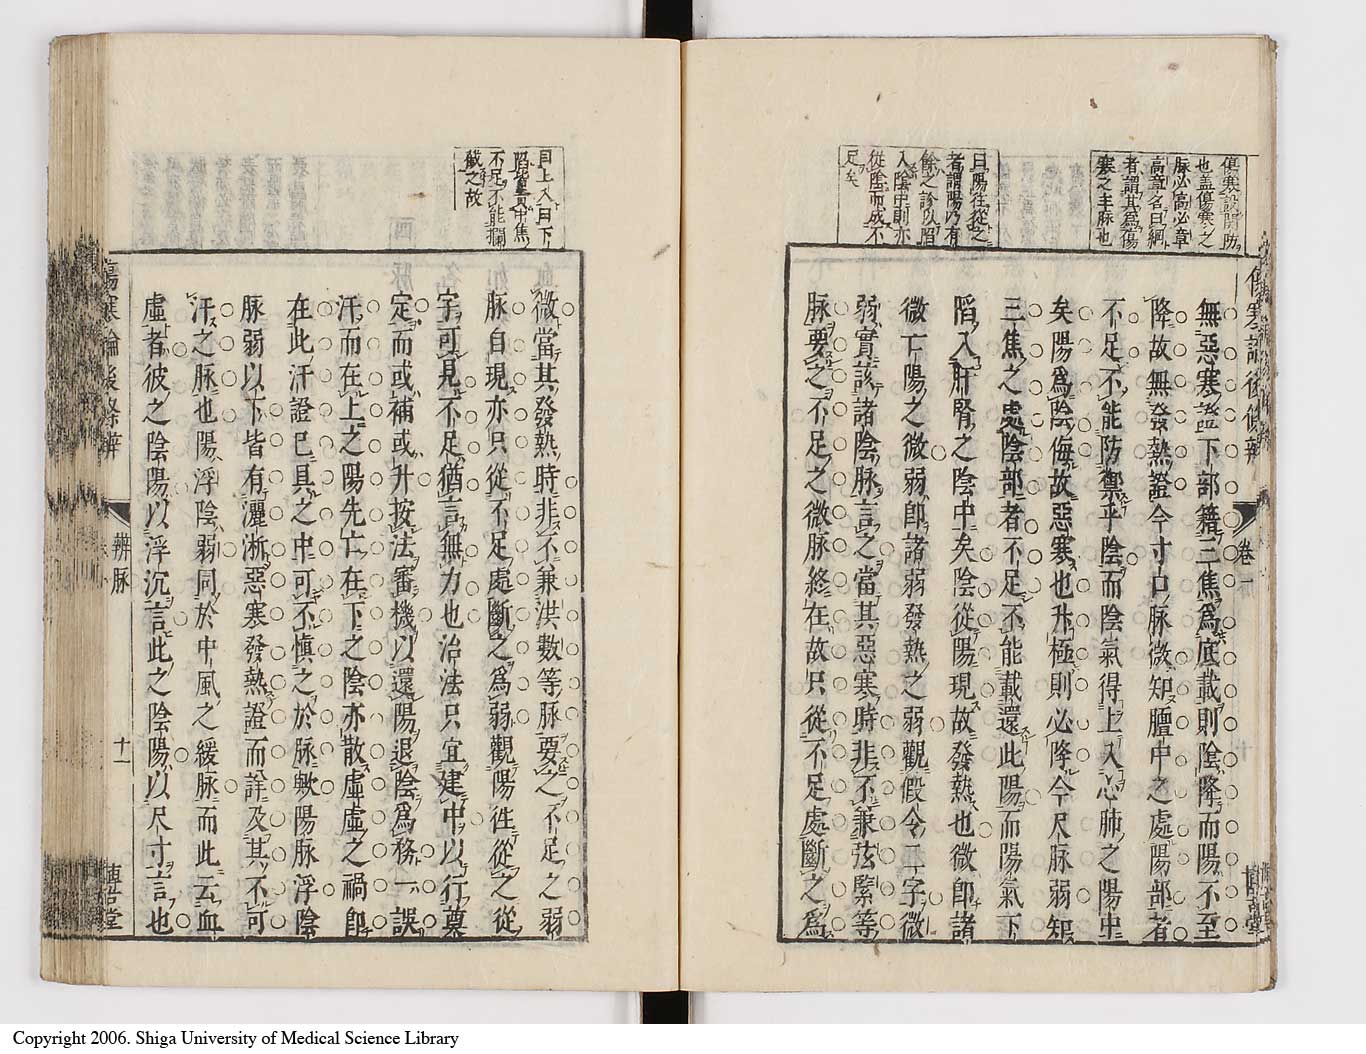 傷寒設開防
也蓋傷寒之
脉必高必章
高章名曰綱
者謂其爲傷
寒之主脉也
曰陽往從之
者謂陽乃有
餘之診以陷
入陰中則亦
從陰而成不
足矣
傷寒論後條辨
卷一
博古堂
無惡寒證下部籍三焦爲底載則陰降而陽不至
降故無發熱證今寸口脉微知膻中之處陽部者
不足不能防禦乎陰而陰氣得上入心肺之陽中
矣陽爲陰侮故惡寒也升極則必降今尺脉弱知
三焦之處陰部者不足不能載還此陽而陽氣下
陷入肝腎之陰中矣陰從陽現故發熱也微即諸
微亡陽之微弱即諸弱發熱之弱觀假令二字微
弱實該諸陰脉言之當其惡寒時非不兼弦緊等
脉要之不足之微脉終在故只從不足處斷之爲
曰上入曰下
陷皆責中焦
不足不能攔
截之故
微當其發熱時非不兼洪數等脉要之不足之弱
脉自現亦只從不足處斷之爲弱觀陽徃從之從
字可見不足猶言無力也治法只宜建中以行墓
定而或補或升按法審機以還陽退陰爲務一誤
汗而在上之陽先亡在下之陰亦散虛虛之禍即
在此汗證已具之中可不慎之於脉歟陽脉浮陰
脉弱以下皆有灑淅惡寒發熱證而詳及其不可
汗之脉也陽浮陰弱同於中風之緩脉而此云血
虛者彼之陰陽以浮沉言此之陰陽以尺寸言也
傷寒論後條辨
辨脉
十一
博古堂
Copyright 2006. Shiga University of Medical Science Library